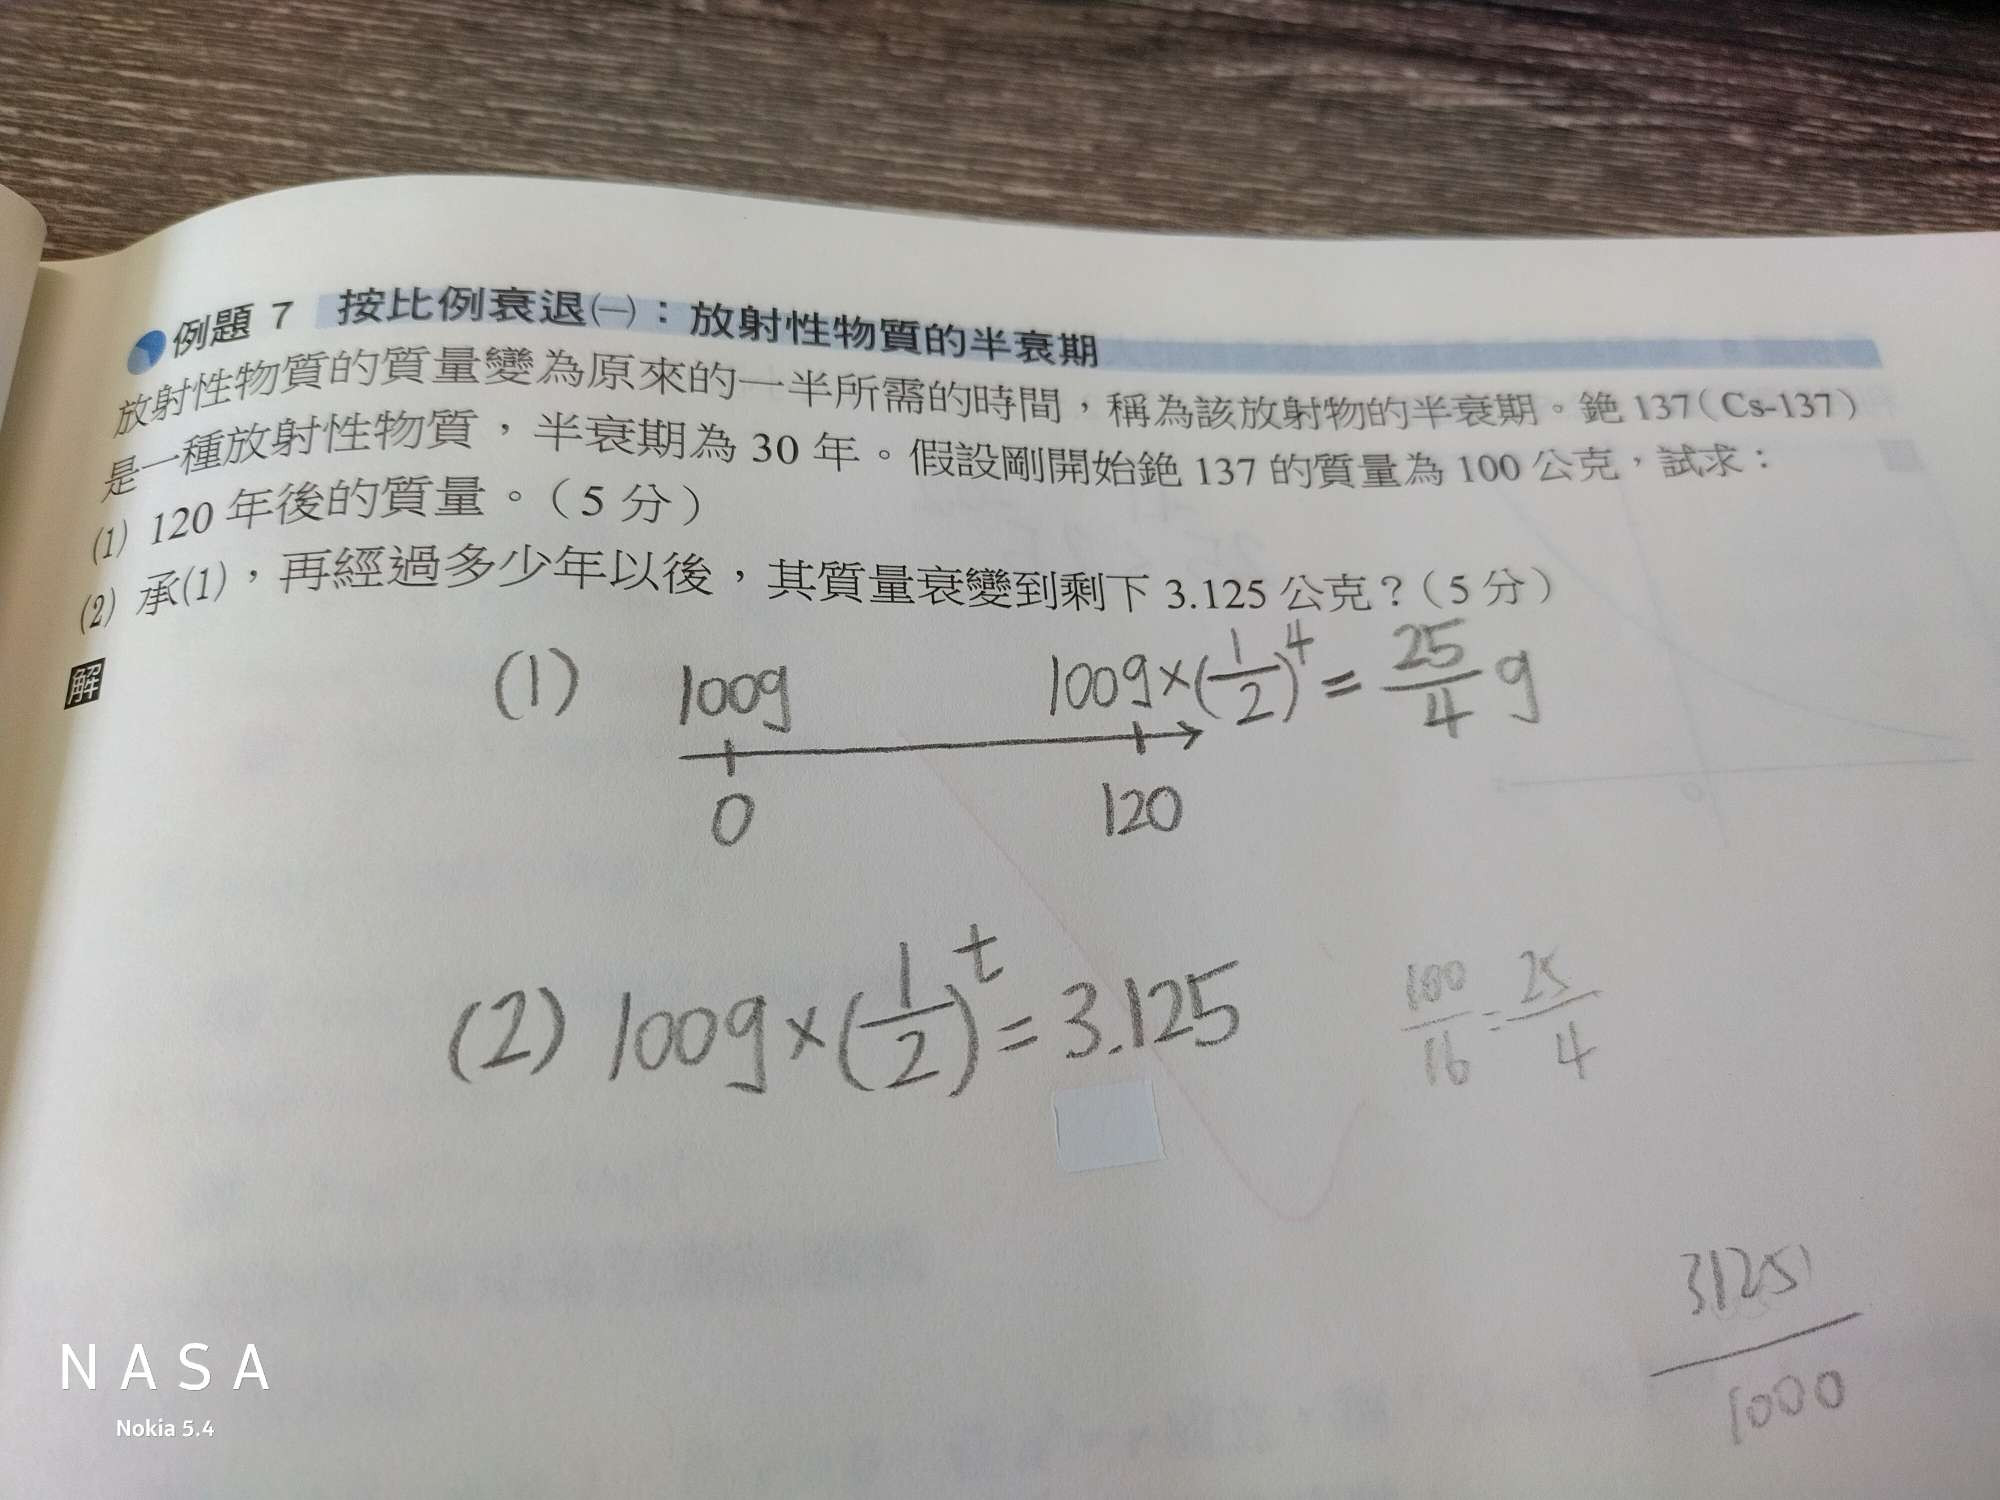 例題 7 按比例衰退㈠：放射性物質的半衰期
放射性物質的質量變為原來的一半所需的時間，稱為該放射物的半衰期。銫 137（Cs-137）
是一種放射性物質，半衰期為 30 年。假設剛開始銫 137 的質量為 100 公克，試求：
(1) 120 年後的質量。（5 分）
(2) 承(1)，再經過多少年以後，其質量衰變到剩下 3.125 公克？（5 分）
解
(1) 100g 100g×(1/2)^4 = 25/4 g
0 120
(2) 100g×(1/2)^t = 3.125
100/16 = 25/4
3125/1000
NASA
Nokia 5.4